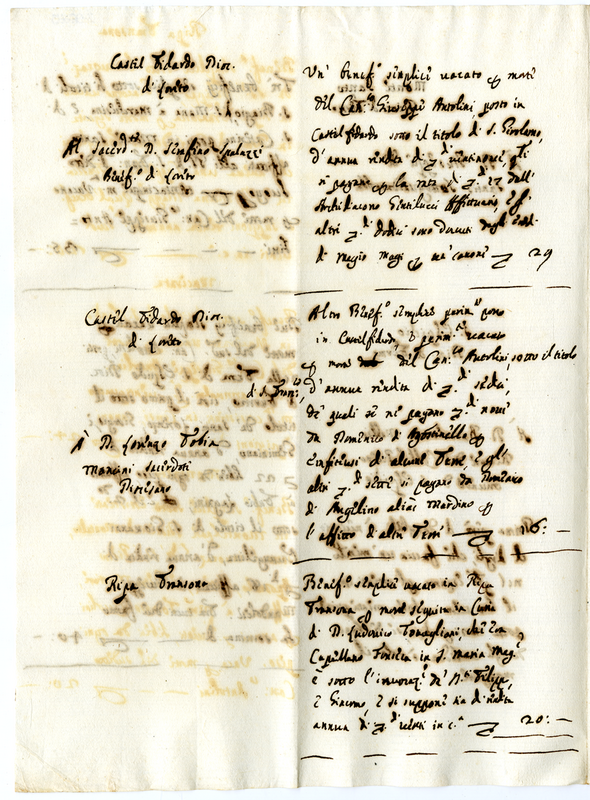 Castel Fidardo Dioc.
di Loreto
Al Sacerd.te D. Serafino
Benef.o di Loreto
Un' Benef.o simplice vacato morte
del Can.co Giuseppe Antolini, posto in
Castelfidardo sotto il titolo di S. Girolamo,
d'annua rendita di ventinove,
si pagano la rata di 17 dall'
Arcidiacono Gentilucci Affittuario, e gl'
altri dodici sono dovuti dagli
di Magio Magi un' canone 29
Castel Fidardo Dioc.
di Loreto
A D. Lorenzo Tobia
Mancini Sacerdote
Diocesano
Altro Benef.o simplice parim.te posto
in Castelfidardo, e parim.te vacato
morte del Can.co Antolini, sotto il titolo
di S. d'annua rendita di sedici,
de quali se ne pagano nove
da Domenico di Agostinello
Enfiteusi di alcune Terre, e gl'
altri sette si pagano da Domenico
di Angelino alias Mardino
l'affitto d'altre Terre 16: —
Ripa Transona
Benef.o simplice vacato in Ripa
Transona morte seguita in Curia
di D. Ludovico era
Capellano in S. Maria Mag.e
e sotto l'invocaz.e de' S.ti Filippo,
e Giacomo, e si suppone sia di rendita
annua di venti in c.a 20: —